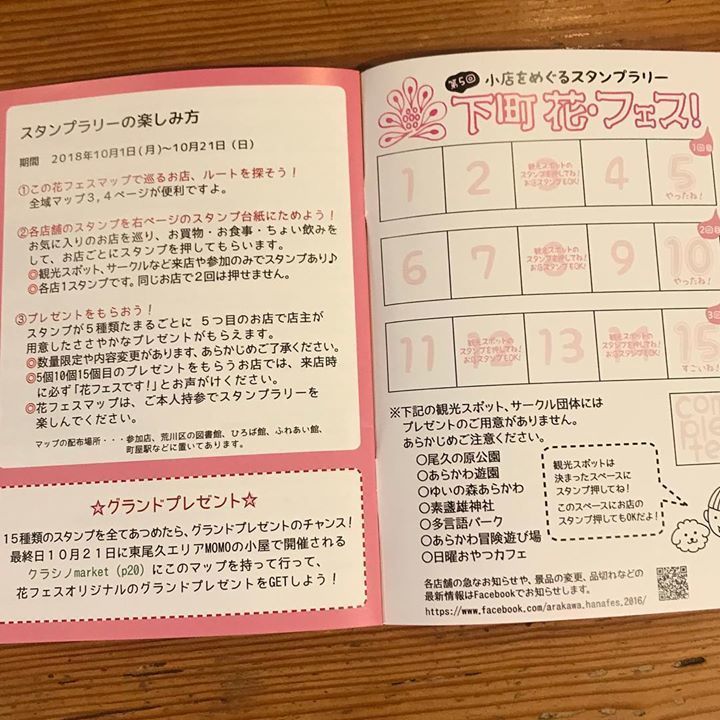 スタンプラリーの楽しみ方
期間 2018年10月1日(月)～10月21日(日)
①この花フェスマップで巡るお店、ルートを探そう！
全域マップ3,4ページが便利ですよ。
②各店舗のスタンプを右ページのスタンプ台紙にためよう！
お気に入りのお店を巡り、お買物・お食事・ちょい飲みを
して、お店ごとにスタンプを押してもらいます。
◎観光スポット、サークルなど来店や参加のみでスタンプあり♪
◎各店1スタンプです。同じお店で2回は押せません。
③プレゼントをもらおう！
スタンプが5種類たまるごとに 5つ目のお店で店主が
用意したささやかなプレゼントがもらえます。
◎数量限定や内容変更があります、あらかじめご了承ください。
◎5個10個15個目のプレゼントをもらうお店では、来店時
に必ず「花フェスです！」とお声がけください。
◎花フェスマップは、ご本人持参でスタンプラリーを
楽しんでください。
マップの配布場所・・・参加店、荒川区の図書館、ひろば館、ふれあい館、
町屋駅などに置いてあります。
☆グランドプレゼント☆
15種類のスタンプを全てあつめたら、グランドプレゼントのチャンス！
最終日10月21日に東尾久エリアMOMOの小屋で開催される
クラシノmarket (p20) にこのマップを持って行って、
花フェスオリジナルのグランドプレゼントをGETしよう！
第5回 小店をめぐるスタンプラリー
下町 花・フェス！
1回目
1 2 観光スポットの
スタンプを押してね！
お店スタンプもOK！
4 5
やったね！
2回目
6 7 観光スポットの
スタンプを押してね！
お店スタンプもOK！
9 10
やったね！
3回
11 12 13 14 15
観光スポットの
スタンプを押してね！
お店スタンプもOK！
観光スポットの
スタンプを押してね！
お店スタンプもOK！
すごいね！
com
ple
te
※下記の観光スポット、サークル団体には
プレゼントのご用意がありません。
あらかじめご注意ください。
○尾久の原公園
○あらかわ遊園
○ゆいの森あらかわ
○素盞雄神社
○多言語パーク
○あらかわ冒険遊び場
○日曜おやつカフェ
観光スポットは
決まったスペースに
スタンプ押してね！
このスペースにお店の
スタンプ押してもOKだよ！
各店舗の急なお知らせや、景品の変更、品切れなどの
最新情報はFacebookでお知らせします。
https://www.facebook.com/arakawa.hanafes.2016/